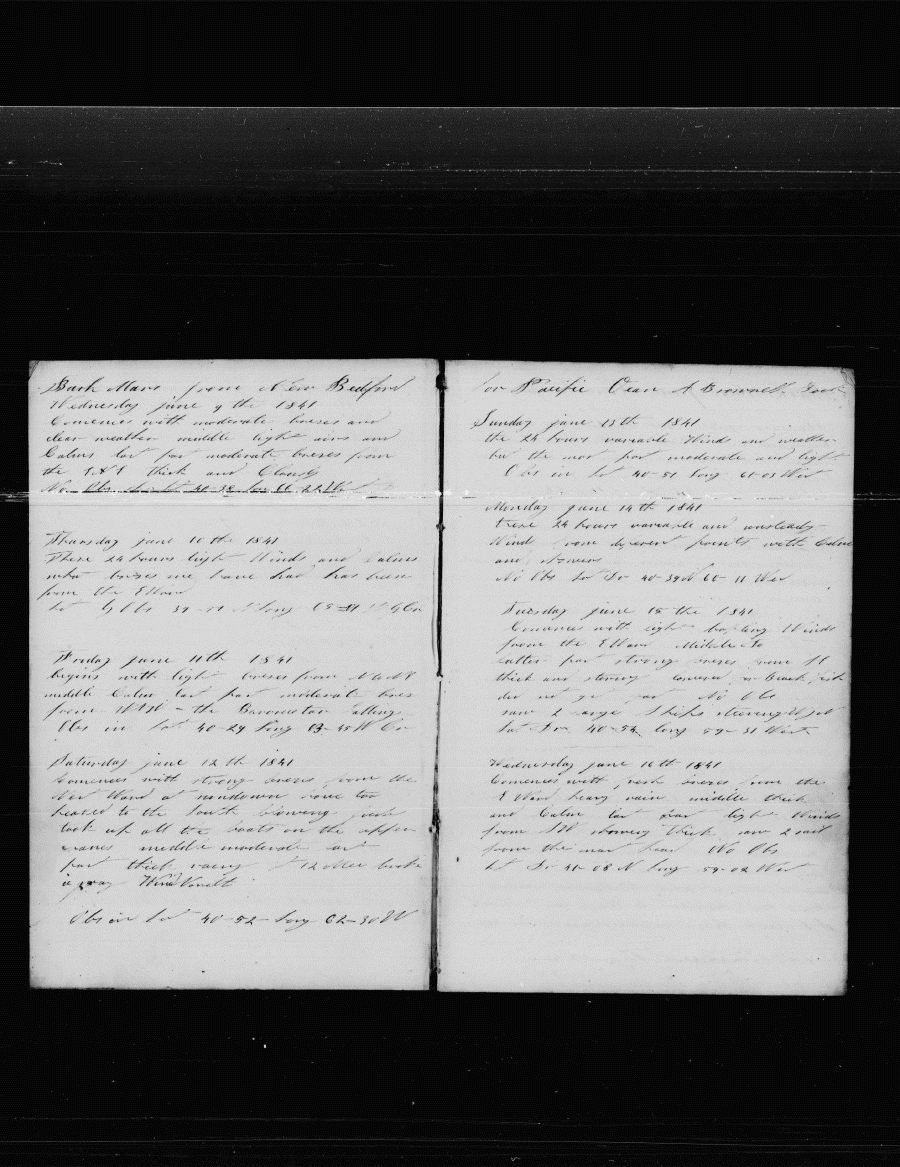 Bark Mars from New Bedford
Wednesday june 9 the 1841
Comences with moderate breses and
clear weather middle light airs and
Calms last part moderate breses from
the thick and Cloudy
No Obs Lat 40-38 Lon 66-22 West
Thursday june 10 the 1841
These 24 hours light Winds and Calms
what breses we have had has been
from the E Ward
Lat by Obs 39- Long
Friday june 11th 1841
begins with light breses from
middle Calm last part moderate bres
from the Barometor
Obs in Lat 40-29 Long 63-45 W
Saturday june 12 th 1841
Comences with strong breses from the
Ward at sundown hove too
headed to the South blowing
took up all the boats on the upper
cranes middle moderate last
part thick at 12 oclock
Wind
Obs in Lat 40-52 - Long 62-30 W
for Pacific Ocean A Brownell
Sunday june 13th 1841
the 24 hours variable Winds and weather
but the most part moderate and light
Obs in Lat 40-51 Long 61-03 West
Monday june 14th 1841
these 24 hours variable and unsteady
Winds from diferent points with Calms
and showers
No Obs Lat Dr 40-39 N 60-11 Wes
Tuesday june 15 the 1841
Comences with light Winds
from the E Ward Middle
latter part strong breses from
thick and stormy
did not get No Obs
saw 2 large Ships steering
Lat Dr 40-54 Long 59-31 West
Wednesday june 16 th 1841
Comences with fresh breses from the
E Ward heavy rain middle thick
and Calm last part light Winds
from SW showery thick saw 2 sail
from the mast head No Obs
Lat Dr 41-08 N Long 59-02 West